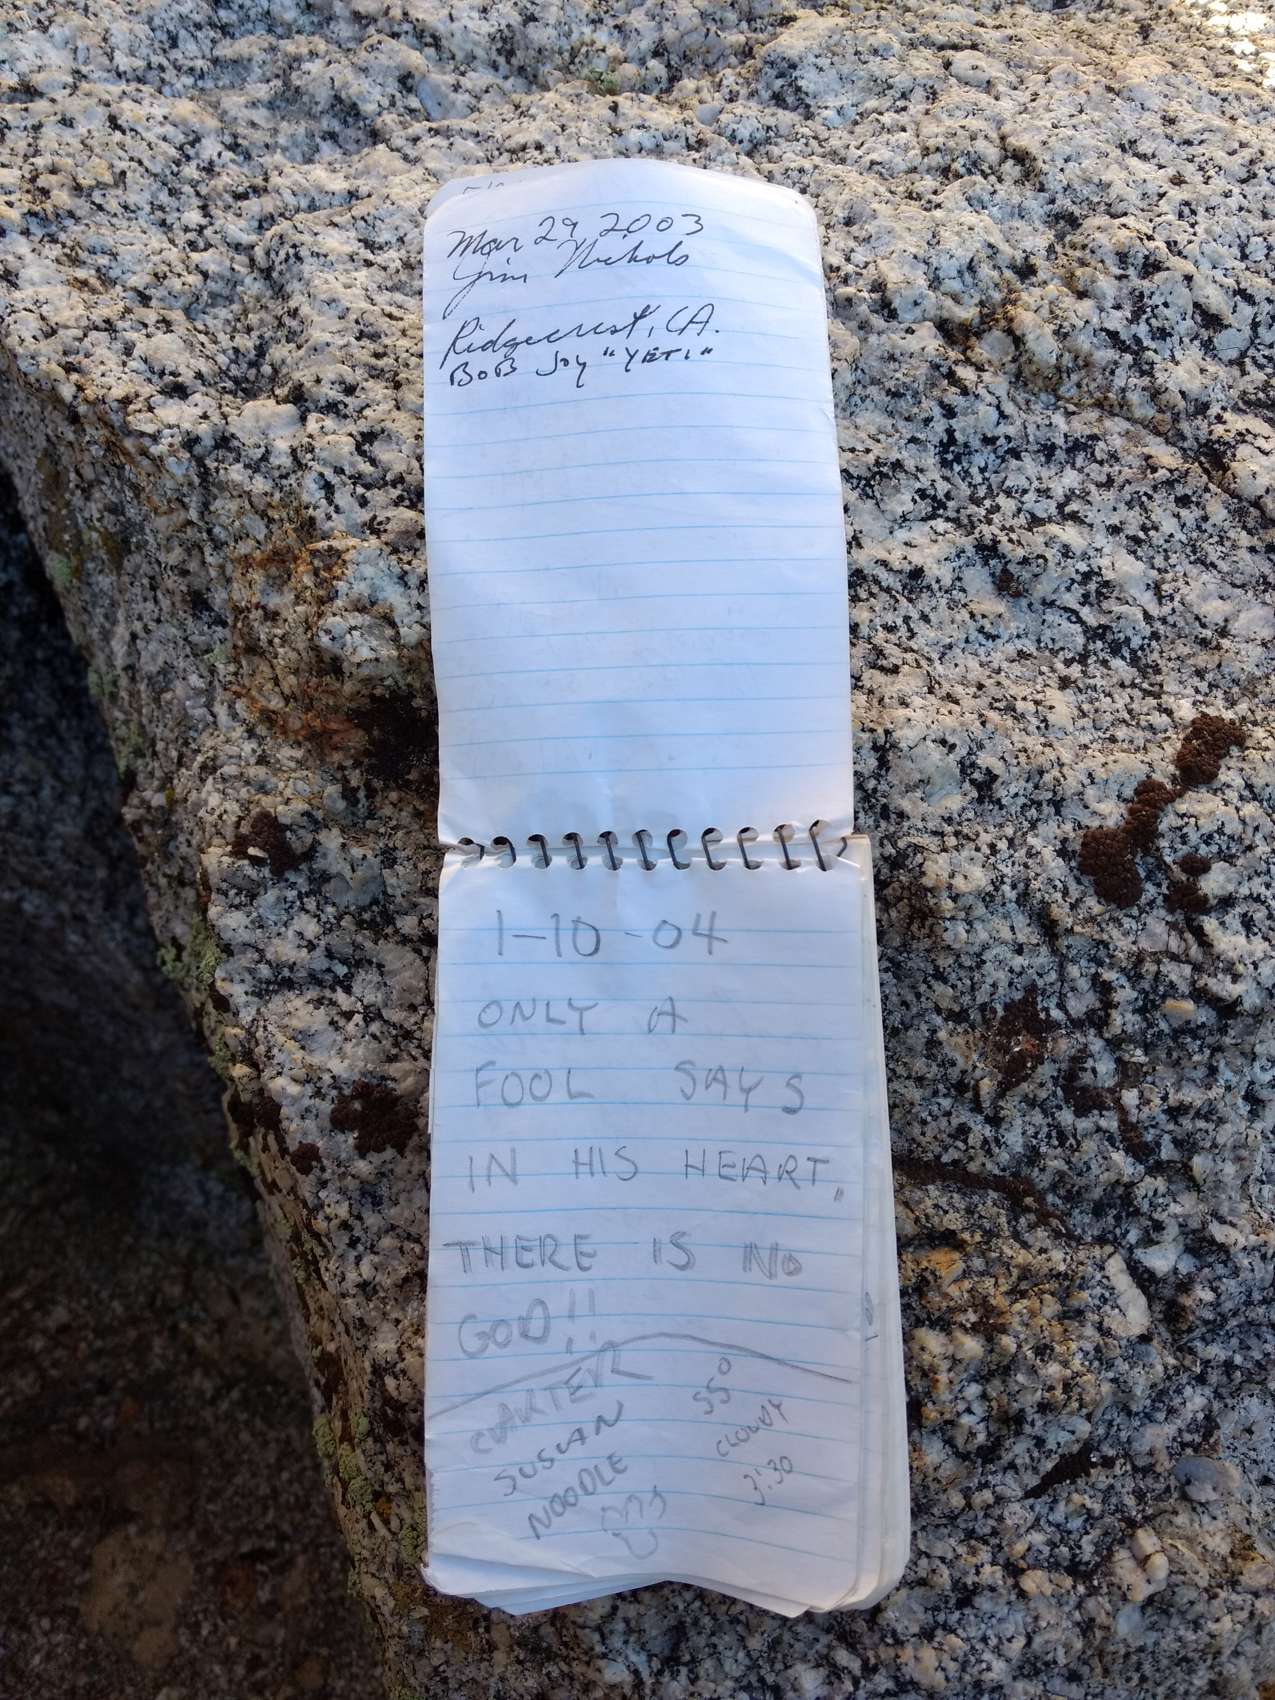 Mar 29, 2003
Jim Nichols
Ridgecrest, CA.
BOB Joy "YETI"
1-10-04
ONLY A
FOOL SAYS
IN HIS HEART,
THERE IS NO
GOD!!
CARTER
SUSAN
NOODLE
55°
CLOUDY
3:30